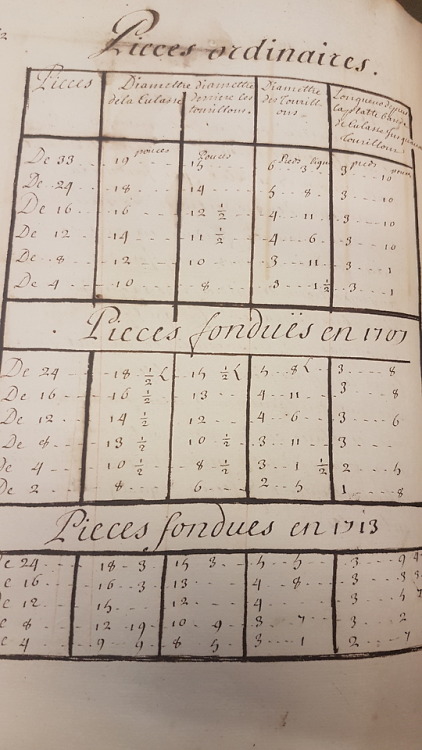 Pieces ordinaires.
Pieces Diamettre diamettre Diamettre Longueur depuis
de la Culasse derriere les des tourill- la platte bande
tourillons. ons. de Culasse
tourillons
pouces Pouces Pieds pieds
De 33 19 15 6 3 3 10
De 24 18 14 5 8 3 10
De 16 16 12 1/2 4 11 3 10
De 12 14 11 1/2 4 6 3 10
De 8 12 10 3 11 3 1
De 4 10 8 3 1 1/2 3 1
Pieces fonduës en 1707
De 24 18 1/2 15 1/2 5 8 3 8
De 16 16 1/2 13 4 11 3 8
De 12 14 1/2 12 4 6 3 6
De 8 13 1/2 10 1/2 3 11 3
De 4 10 1/2 8 1/2 3 1 1/2 2 5
De 2 8 6 2 5 1 8
Pieces fondues en 1713
De 24 18 3 15 3 5 5 3 9
De 16 16 3 13 4 8 3 3
De 12 15 12 4 3 5
8 12 10 9 3 7 3 2
4 9 9 8 5 3 1 2 7